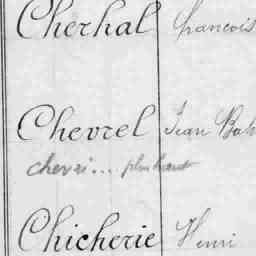 Cherhal francois
Chevrel Jean Bab
chevri... plus haut
Chicherie Henri